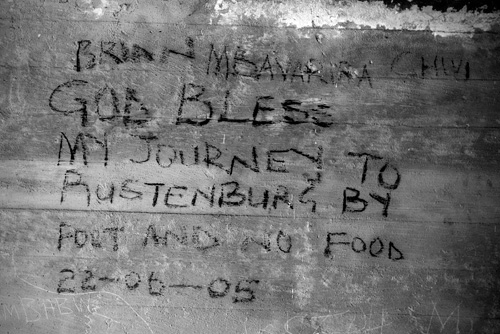 BRIAN MBAVARIRA CHIVI
GOD BLESS
MY JOURNEY TO
RUSTENBURG BY
FOOT AND NO FOOD
22-06-05